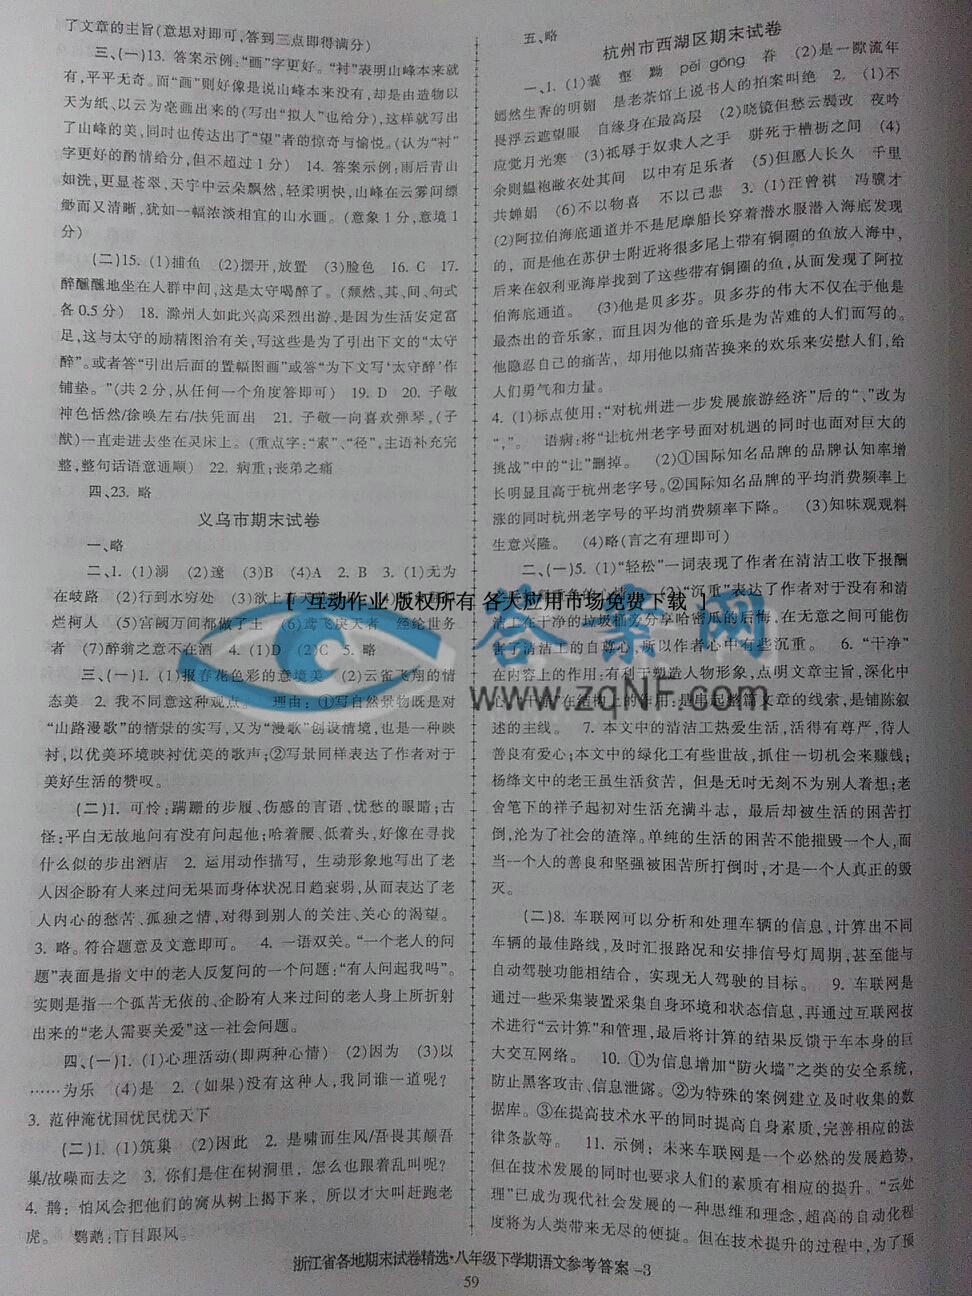 了文章的主旨(意思对即可,答到三点即得满分)
三、(一)13. 答案示例:“画”字更好。“衬”表明山峰本来就
有,平平无奇。而“画”则好像是说山峰本来没有,却是由造物以
天为纸、以云为毫画出来的(写出“拟人”也给分),这样就写出
了山峰的美,同时也传达出了“望”者的惊奇与愉悦。(认为“衬”
字更好的酌情给分,但不超过1分) 14. 答案示例:雨后青山
如洗,更显苍翠、天宇中云朵飘然,轻柔明快,山峰在云雾间缥
缈而又清晰,犹如一幅浓淡相宜的山水画。(意象1分,意境1
分)
(二)15. (1)捕鱼 (2)摆开,放置 (3)脸色 16. C 17.
醉醺醺地坐在人群中间,这是太守喝醉了。(颓然、其、间、句式
各0.5分) 18. 滁州人如此兴高采烈出游,是因为生活安定富
足,这与太守的励精图治有关,写这些是为了引出下文的“太守
醉”。或者答“引出后面的置幅图画”或答“为下文写‘太守醉’作
铺垫。”(共2分,从任何一个角度答即可) 19. D 20. 子敬
神色恬然/徐唤左右/扶凭而出 21. 子敬一向喜欢弹琴,(子
猷)一直走进去坐在灵床上。(重点字:“素”、“径”,主语补充完
整,整句话语意通顺) 22. 病重;丧弟之痛
四、23. 略
义乌市期末试卷
一、略
二、1. (1)溺 (2)邃 (3)B (4)A 2. B 3. (1)无为
在歧路 (2)行到水穷处 (3)欲上
烂柯人 (5)宫阙万间都做了土 (6)鸢飞戾天者 经纶世务
者 (7)醉翁之意不在酒 4. (1)D (2)C 5. 略
三、(一)1. (1)报春花色彩的意境美 (2)云雀飞翔的情
态美 2. 我不同意这种观点。 理由:①写自然景物既是对
“山路漫歌”的情景的实写,又为“漫歌”创设情境,也是一种映
衬,以优美环境映衬优美的歌声;②写景同样表达了作者对于
美好生活的赞叹。
(二)1. 可怜:蹒跚的步履、伤感的言语,忧愁的眼暗;古
怪:平白无故地问有没有问起他;哈着腰、低着头,好像在寻找
什么似的步出酒店 2. 运用动作描写,生动形象地写出了老
人因企盼有人来过问无果而身体状况日趋衰弱,从而表达了老
人内心的愁苦、孤独之情,对得到别人的关注、关心的渴望。
3. 略。符合题意及文意即可。 4. 一语双关。“一个老人的问
题”表面是指文中的老人反复问的一个问题:“有人问起我吗”。
实则是指一个孤苦无依的、企盼有人来过问的老人身上所折射
出来的“老人需要关爱”这一社会问题。
四、(一)1. (1)心理活动(即两种心情) (2)因为 (3)以
……为乐 (4)是 2. (如果)没有这种人,我同谁一道呢?
3. 范仲淹忧国忧民忧天下
(二)1. (1)筑巢 (2)因此 2. 是啸而生风/吾畏其颠吾
巢/故噪而去之 3. 你们是住在树洞里,怎么也跟着乱叫呢?
4. 鹊:怕风会把他们的窝从树上揭下来,所以才大叫赶跑老
虎。 鹦鹉:盲目跟风。
五、略
杭州市西湖区期末试卷
一、1. (1)囊 壑 黝 pěi gōng 眷 (2)是一隙流年
嫣然生香的明媚 是老茶馆上说书人的拍案叫绝 2. (1)不
畏浮云遮望眼 自缘身在最高层 (2)晓镜但愁云鬓改 夜吟
应觉月光寒 (3)祗辱于奴隶人之手 骈死于槽枥之间 (4)
余则缊袍敝衣处其间 以中有足乐者 (5)但愿人长久 千里
共婵娟 (6)不以物喜 不以己悲 3. (1)汪曾祺 冯骥才
(2)阿拉伯海底通道并不是尼摩船长穿着潜水服潜入海底发现
的,而是他在苏伊士附近将很多尾上带有铜圈的鱼放入海中,
后来在叙利亚海岸找到了这些带有铜圈的鱼,从而发现了阿拉
伯海底通道。 (3)他是贝多芬。贝多芬的伟大不仅在于他是
最杰出的音乐家,而且因为他的音乐是为苦难的人们而写的。
他隐忍自己的痛苦,却用他以痛苦换来的欢乐来安慰人们,给
人们勇气和力量。
4. (1)标点使用:“对杭州进一步发展旅游经济”后的“、”改为
“,”。 语病:将“让杭州老字号面对机遇的同时也面对巨大的
挑战”中的“让”删掉。 (2)①国际知名品牌的品牌认知率增
长明显且高于杭州老字号。②国际知名品牌的平均消费频率上
涨的同时杭州老字号的平均消费频率下降。 (3)知味观观料
生意兴隆。 (4)略(言之有理即可)
二、(一)5. (1)“轻松”一词表现了作者在清洁工收下报酬
(2)“沉重”表达了作者对于没有和清
洁工在干净的垃圾桶旁分享哈密瓜的后悔,在无意之间可能伤
害了清洁工的自尊心,所以作者心中有些沉重。 6. “干净”
在内容上的作用:有利于塑造人物形象,点明文章主旨,深化中
在结构上的作用:是串起整篇文章的线索,是铺陈叙
述的主线。 7. 本文中的清洁工热爱生活,活得有尊严,待人
善良有爱心;本文中的绿化工有些世故,抓住一切机会来赚钱;
杨绛文中的老王虽生活贫苦,但是无时无刻不为别人着想;老
舍笔下的祥子起初对生活充满斗志,最后却被生活的困苦打
倒,沦为了社会的渣滓。单纯的生活的困苦不能摧毁一个人,而
当一个人的善良和坚强被困苦所打倒时,才是一个人真正的毁
灭。
(二)8. 车联网可以分析和处理车辆的信息,计算出不同
车辆的最佳路线,及时汇报路况和安排信号灯周期,甚至能与
自动驾驶功能相结合,实现无人驾驶的目标。 9. 车联网是
通过一些采集装置采集自身环境和状态信息,再通过互联网技
术进行“云计算”和管理,最后将计算的结果反馈于车本身的巨
大交互网络。 10. ①为信息增加“防火墙”之类的安全系统,
防止黑客攻击、信息泄露。②为特殊的案例建立及时收集的数
据库。③在提高技术水平的同时提高自身素质,完善相应的法
律条款等。 11. 示例:未来车联网是一个必然的发展趋势,
但在技术发展的同时也要求人们的素质有相应的提升。“云处
理”已成为现代社会发展的一种思维和理念,超高的自动化程
度将为人类带来无尽的便捷。但在技术提升的
浙江省各地期末试卷精选·八年级下学期语文参考答案 -3
59
[ 互动作业 版权所有 各大应用市场免费下载 ]
答案网
www.zqNF.com